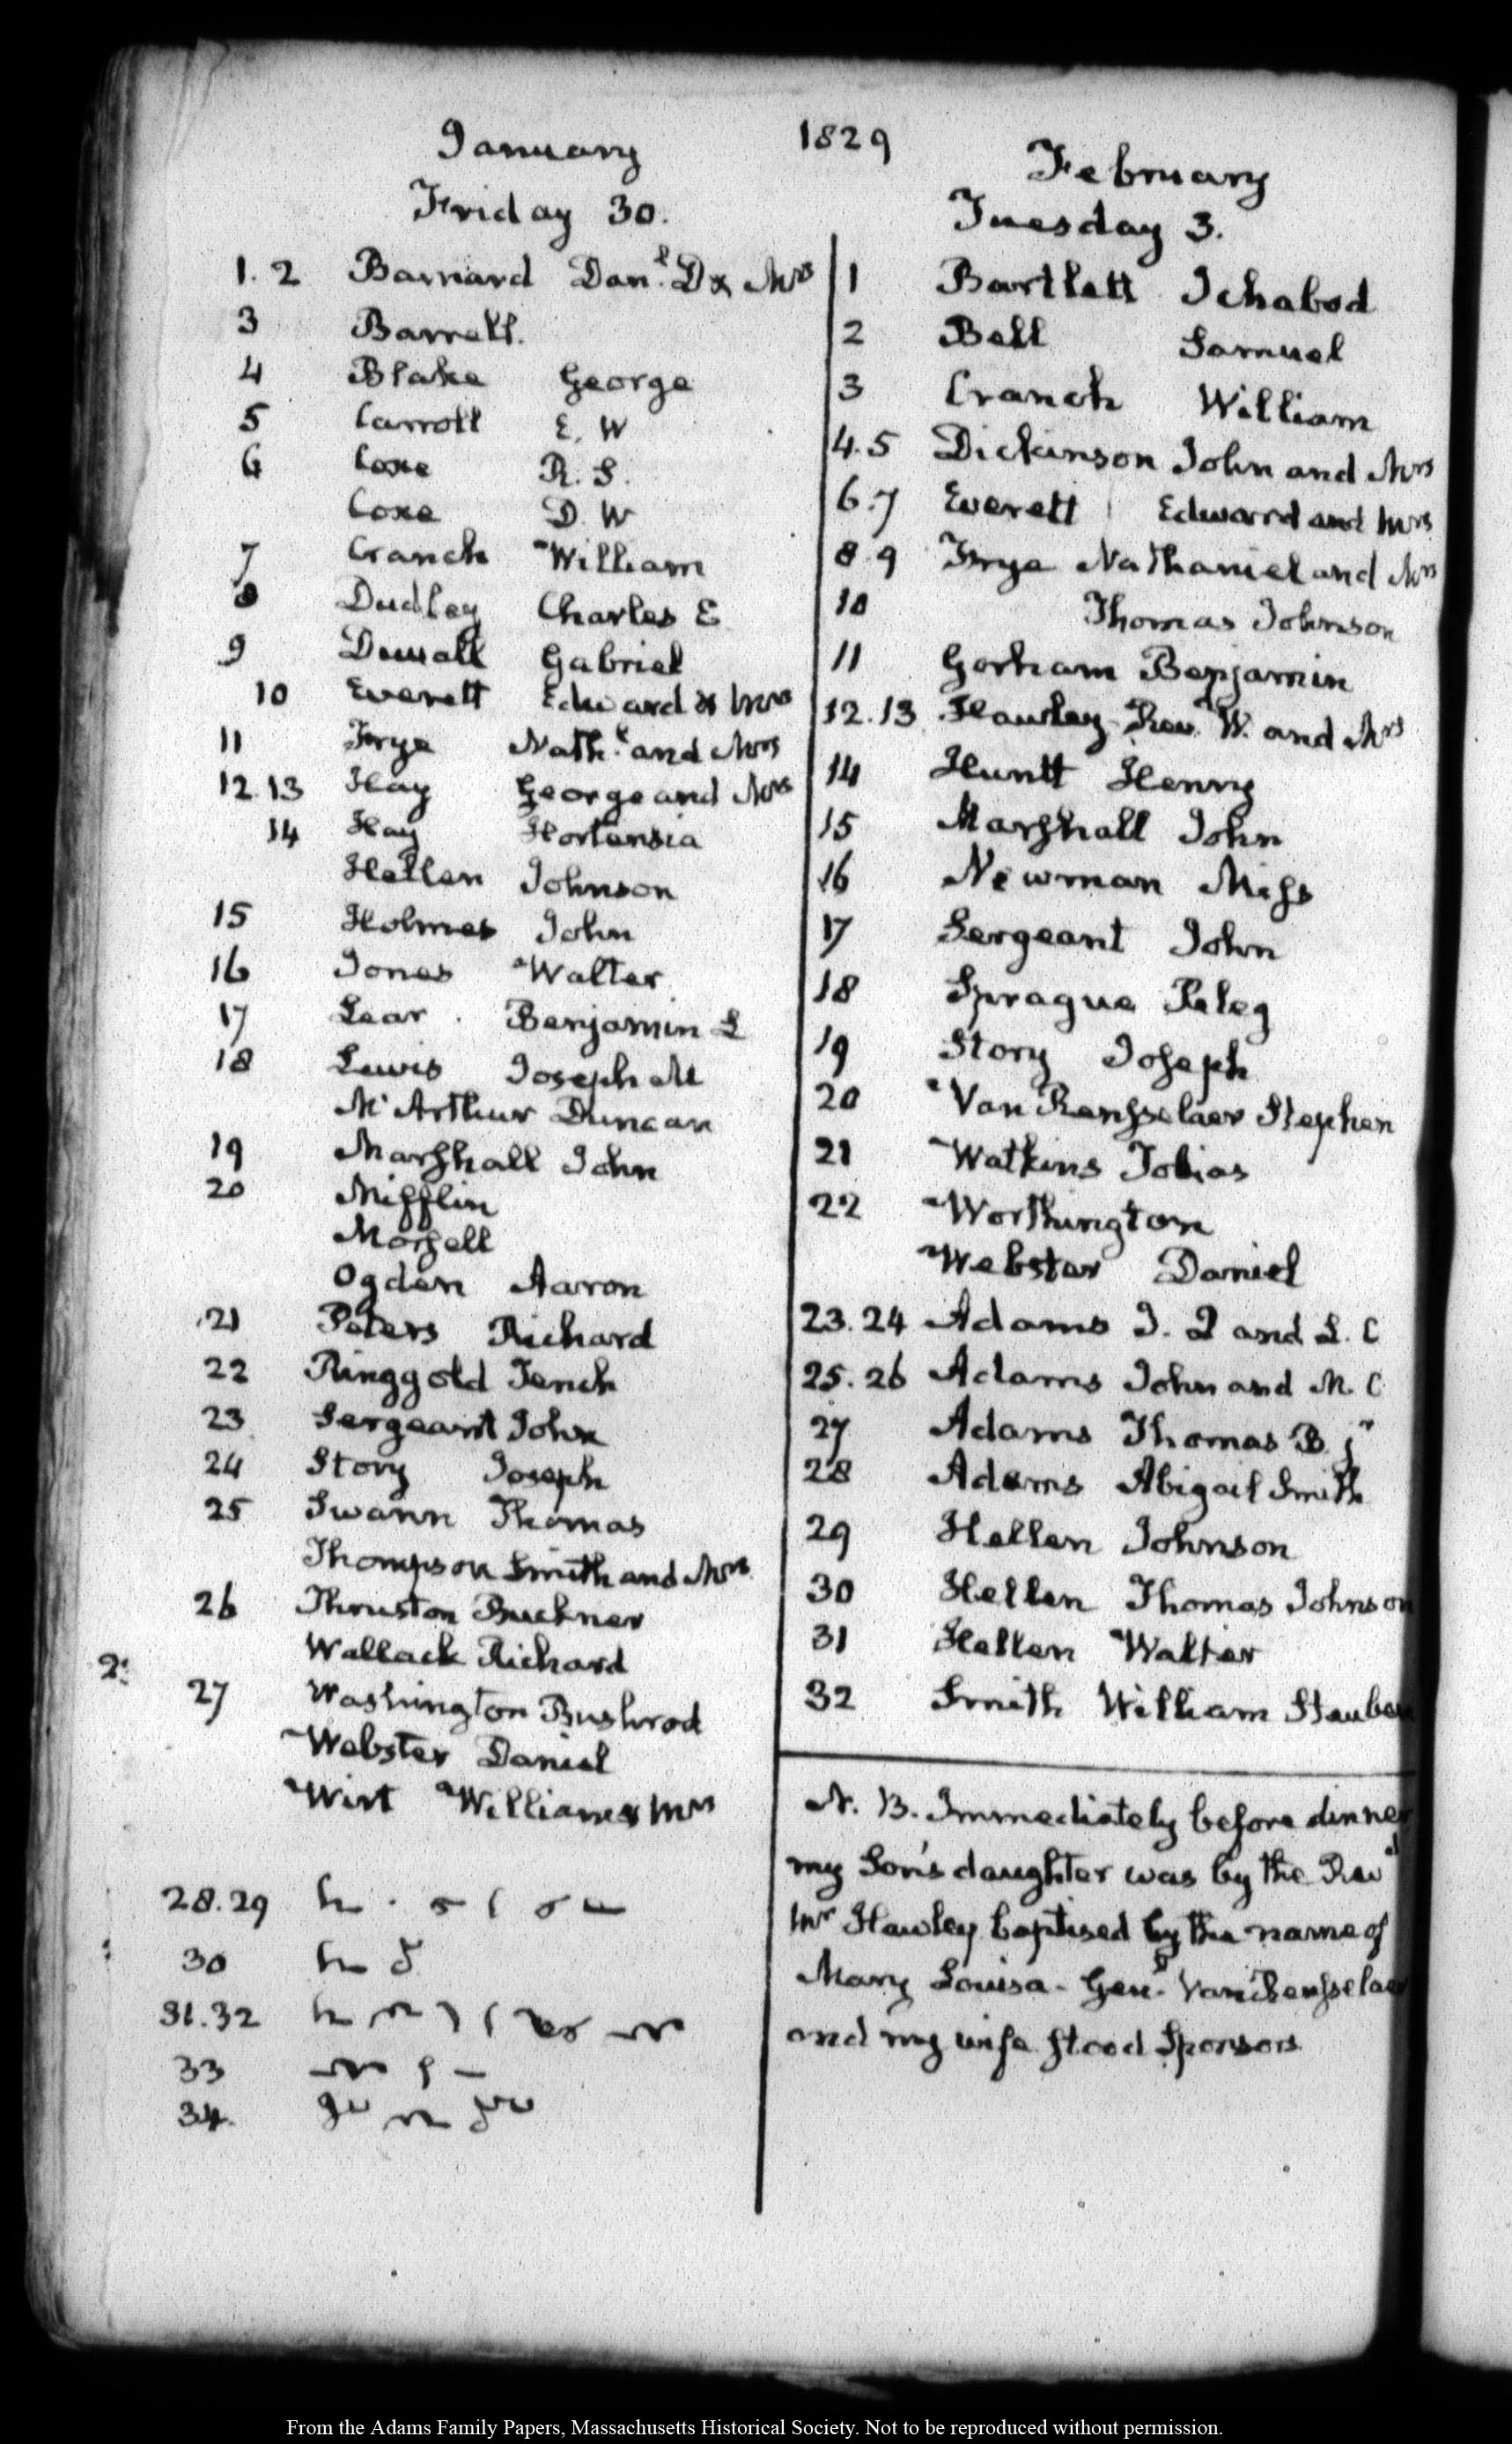 1829
January
Friday 30.
1. 2 Barnard Dan.l D & Mrs
3 Barrell.
4 Blake George
5 Carroll E. W
6 Coxe R. S.
Coxe D. W
7 Cranch William
8 Dudley Charles E
9 Duvall Gabriel
10 Everett Edward & Mrs
11 Frye Nath.l and Mrs
12.13 Hay George and Mrs
14 Hay Hortensia
Hellen Johnson
15 Holmes John
16 Jones Walter
17 Lear. Benjamin L
18 Lewis Joseph M
McArthur Duncan
19 Marshall John
20 Mifflin
Morsell
Ogden Aaron
21 Peters Richard
22 Ringgold Tench
23 Sergeant John
24 Story Joseph
25 Swann Thomas
Thompson Smith and Mrs
26 Thruston Buckner
Wallack Richard
27 Washington Bushrod
Webster Daniel
Wirt William & Mrs
28.29
30
31.32
33
34.
February
Tuesday 3.
1 Bartlett Ichabod
2 Bell Samuel
3 Cranch William
4.5 Dickinson John and Mrs
6.7 Everett Edward and Mrs
8.9 Frye Nathaniel and Mrs
10 Thomas Johnson
11 Gorham Benjamin
12.13 Hawley Rev.d W. and Mrs
14 Huntt Henry
15 Marshall John
16 Newman Miss
17 Sergeant John
18 Sprague Peleg
19 Story Joseph
20 Van Rensselaer Stephen
21 Watkins Tobias
22 Worthington
Webster Daniel
23.24 Adams J. Q and L. C
25.26 Adams John and M. C
27 Adams Thomas B. jr
28 Adams Abigail Smith
29 Hellen Johnson
30 Hellen Thomas Johnson
31 Hellen Walter
32 Smith William Steuben
N. B. Immediately before dinner
my Son's daughter was by the Revd
Mr Hawley baptised by the name of
Mary Louisa - Gen.l Van Rensselaer
and my wife stood Sponsors
From the Adams Family Papers, Massachusetts Historical Society. Not to be reproduced without permission.